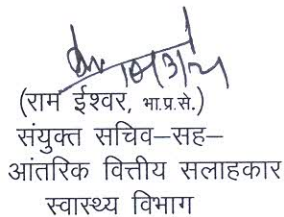 (राम ईश्वर, भा.प्र.से.)
संयुक्त सचिव–सह–
आंतरिक वित्तीय सलाहकार
स्वास्थ्य विभाग